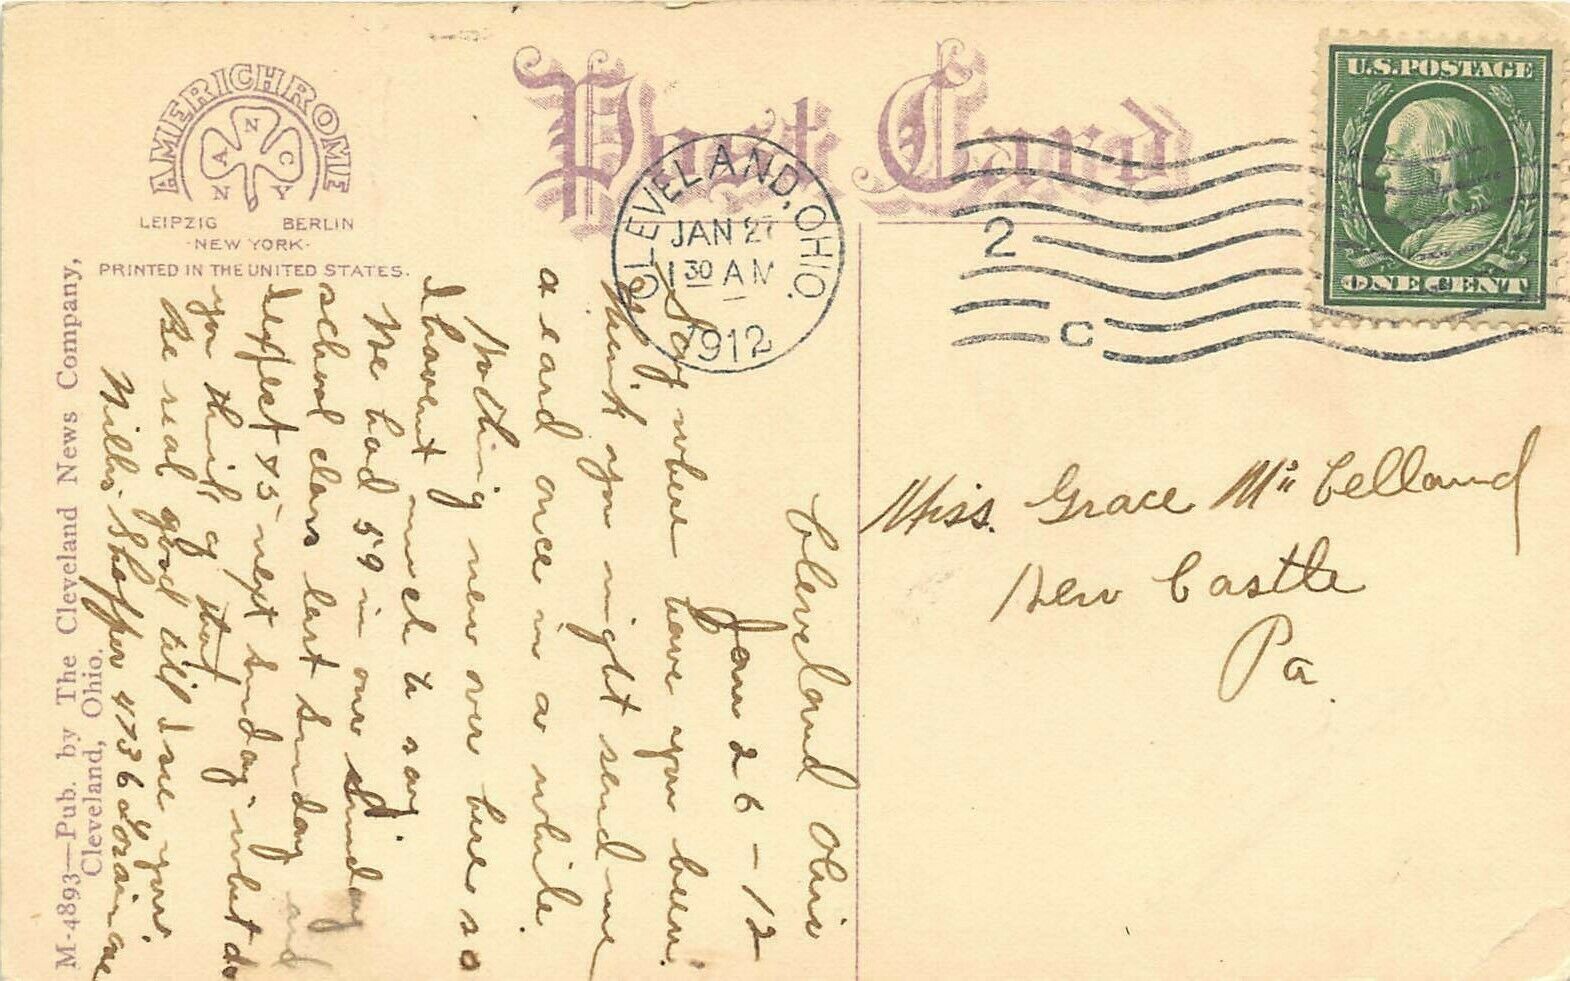 AMERICHROME
A N C
N Y
LEIPZIG BERLIN
·NEW YORK·
PRINTED IN THE UNITED STATES.
Post Card
CLEVELAND, OHIO.
JAN 27
1 30 AM
1912
2
C
U.S. POSTAGE
ONE CENT
M-4893—Pub. by The Cleveland News Company,
Cleveland, Ohio.
Cleveland Ohio
Jan 26-12
Say where have you been.
think you might send me
a card once in a while
Nothing new over here so
I havent much to say.
We had 59 in our Sunday
school class last Sunday and
expect 75 next Sunday what do
you think of that
Be real good till I see you.
Shaffer 4736 Lorain ave
Miss. Grace McCelland
New Castle
Pa.